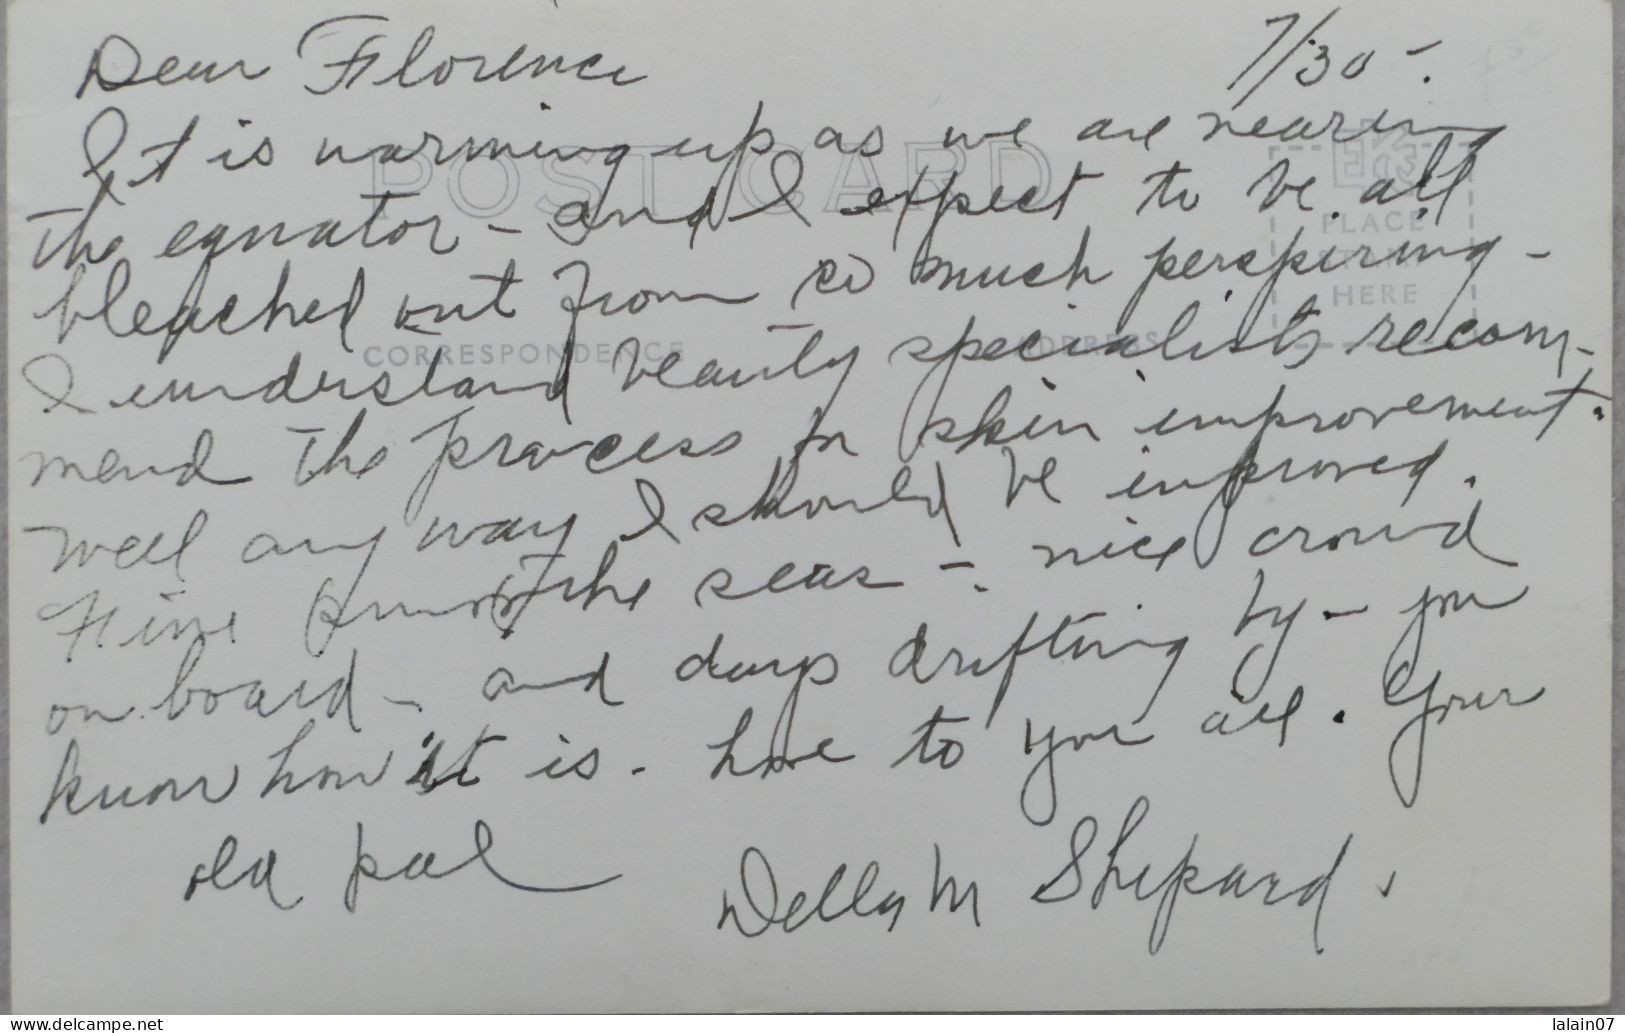 Dear Florence 7/30-.
It is warming up as we are nearing
the equator - and I expect to be all
bleached out from so much perspiring -
I understand beauty specialists recom-
mend the process for skin improvement.
Well any way I should be improved.
Fine the seas - nice crowd
on board - and days drifting by - you
know how it is - love to you all. Your
old pal Della M Shepard.
POST CARD
CORRESPONDENCE
ADDRESS
EKC
PLACE
STAMP
HERE
lalain07
www.delcampe.net